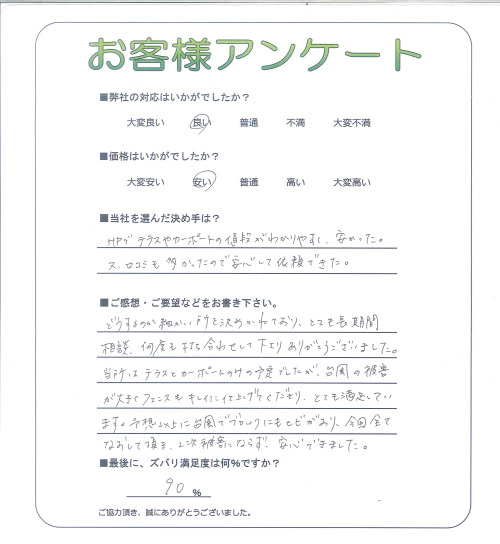 お客様アンケート
■弊社の対応はいかがでしたか？
大変良い 良い 普通 不満 大変不満
■価格はいかがでしたか？
大変安い 安い 普通 高い 大変高い
■当社を選んだ決め手は？
HPで テラスやカーポートの値段がわかりやすく、安かった。
又、口コミも多かったので安心して依頼できた。
■ご感想・ご要望などをお書き下さい。
どうするのか細かい所を決めかねており、とても長期間
相談、何度も打ち合わせして下さりありがとうございました。
当所は テラスとカーポートのみの予定でしたが、台風の被害
が大きくフェンスも キレイに仕上げてくださり、とても満足してい
ます。予想以上に台風でブロックにもヒビがあり、今回全て
なおして頂き、2次被害にならず、安心できました。
■最後に、ズバリ満足度は何%ですか？
90 %
ご協力頂き、誠にありがとうございました。